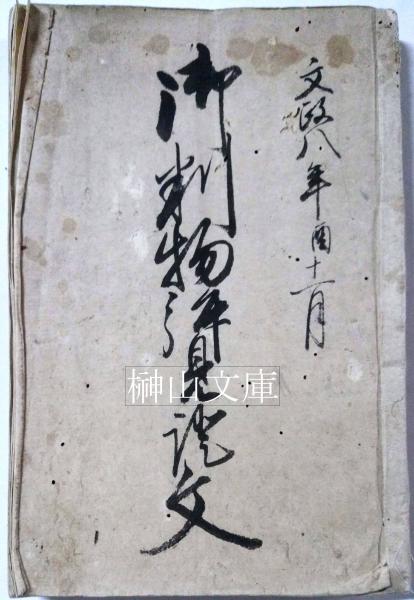 文政八年酉十二月
御判物弐見證文
榊山文庫